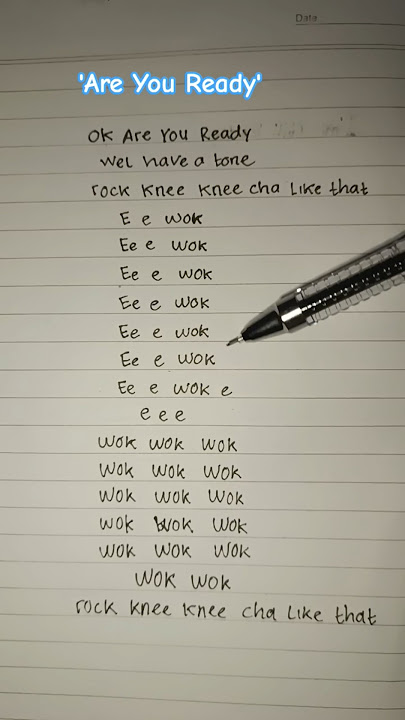 Date
'Are You Ready'
Ok Are You Ready
wel have a tone
rock knee knee cha Like that
E e wok
Ee e wok
Ee e wok
Ee e wok
Ee e wok
Ee e wok
Ee e wok e
e e e
wok wok wok
wok wok wok
wok wok wok
wok wok wok
wok wok wok
wok wok
rock knee knee cha Like that